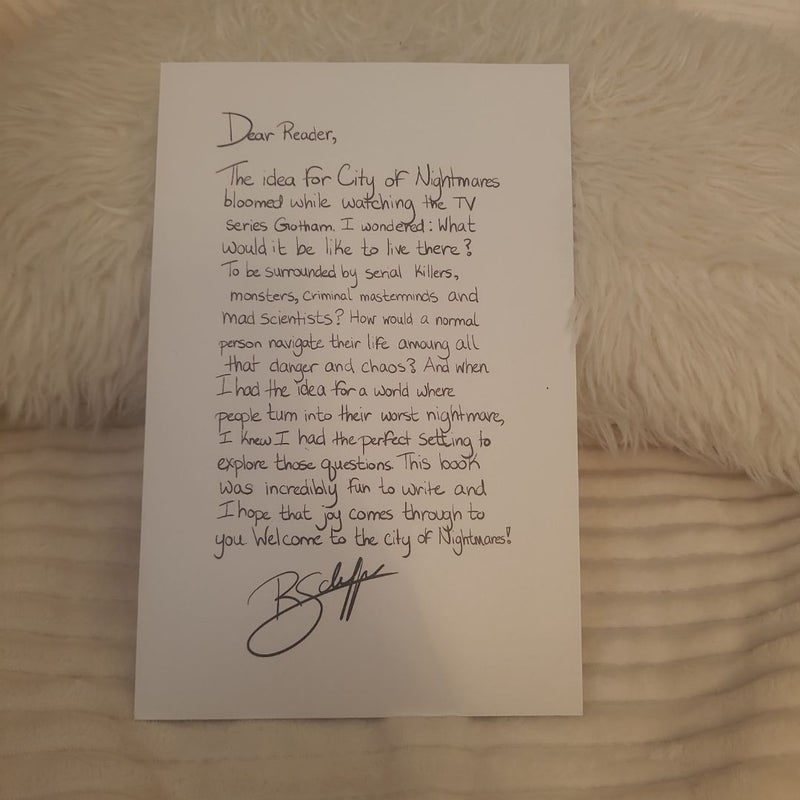 Dear Reader,
The idea for City of Nightmares
bloomed while watching the TV
series Gotham. I wondered: What
would it be like to live there?
To be surrounded by serial killers,
monsters, criminal masterminds and
mad scientists? How would a normal
person navigate their life amoung all
that danger and chaos? And when
I had the idea for a world where
people turn into their worst nightmare,
I knew I had the perfect setting to
explore those questions. This book
was incredibly fun to write and
I hope that joy comes through to
you. Welcome to the city of Nightmares!